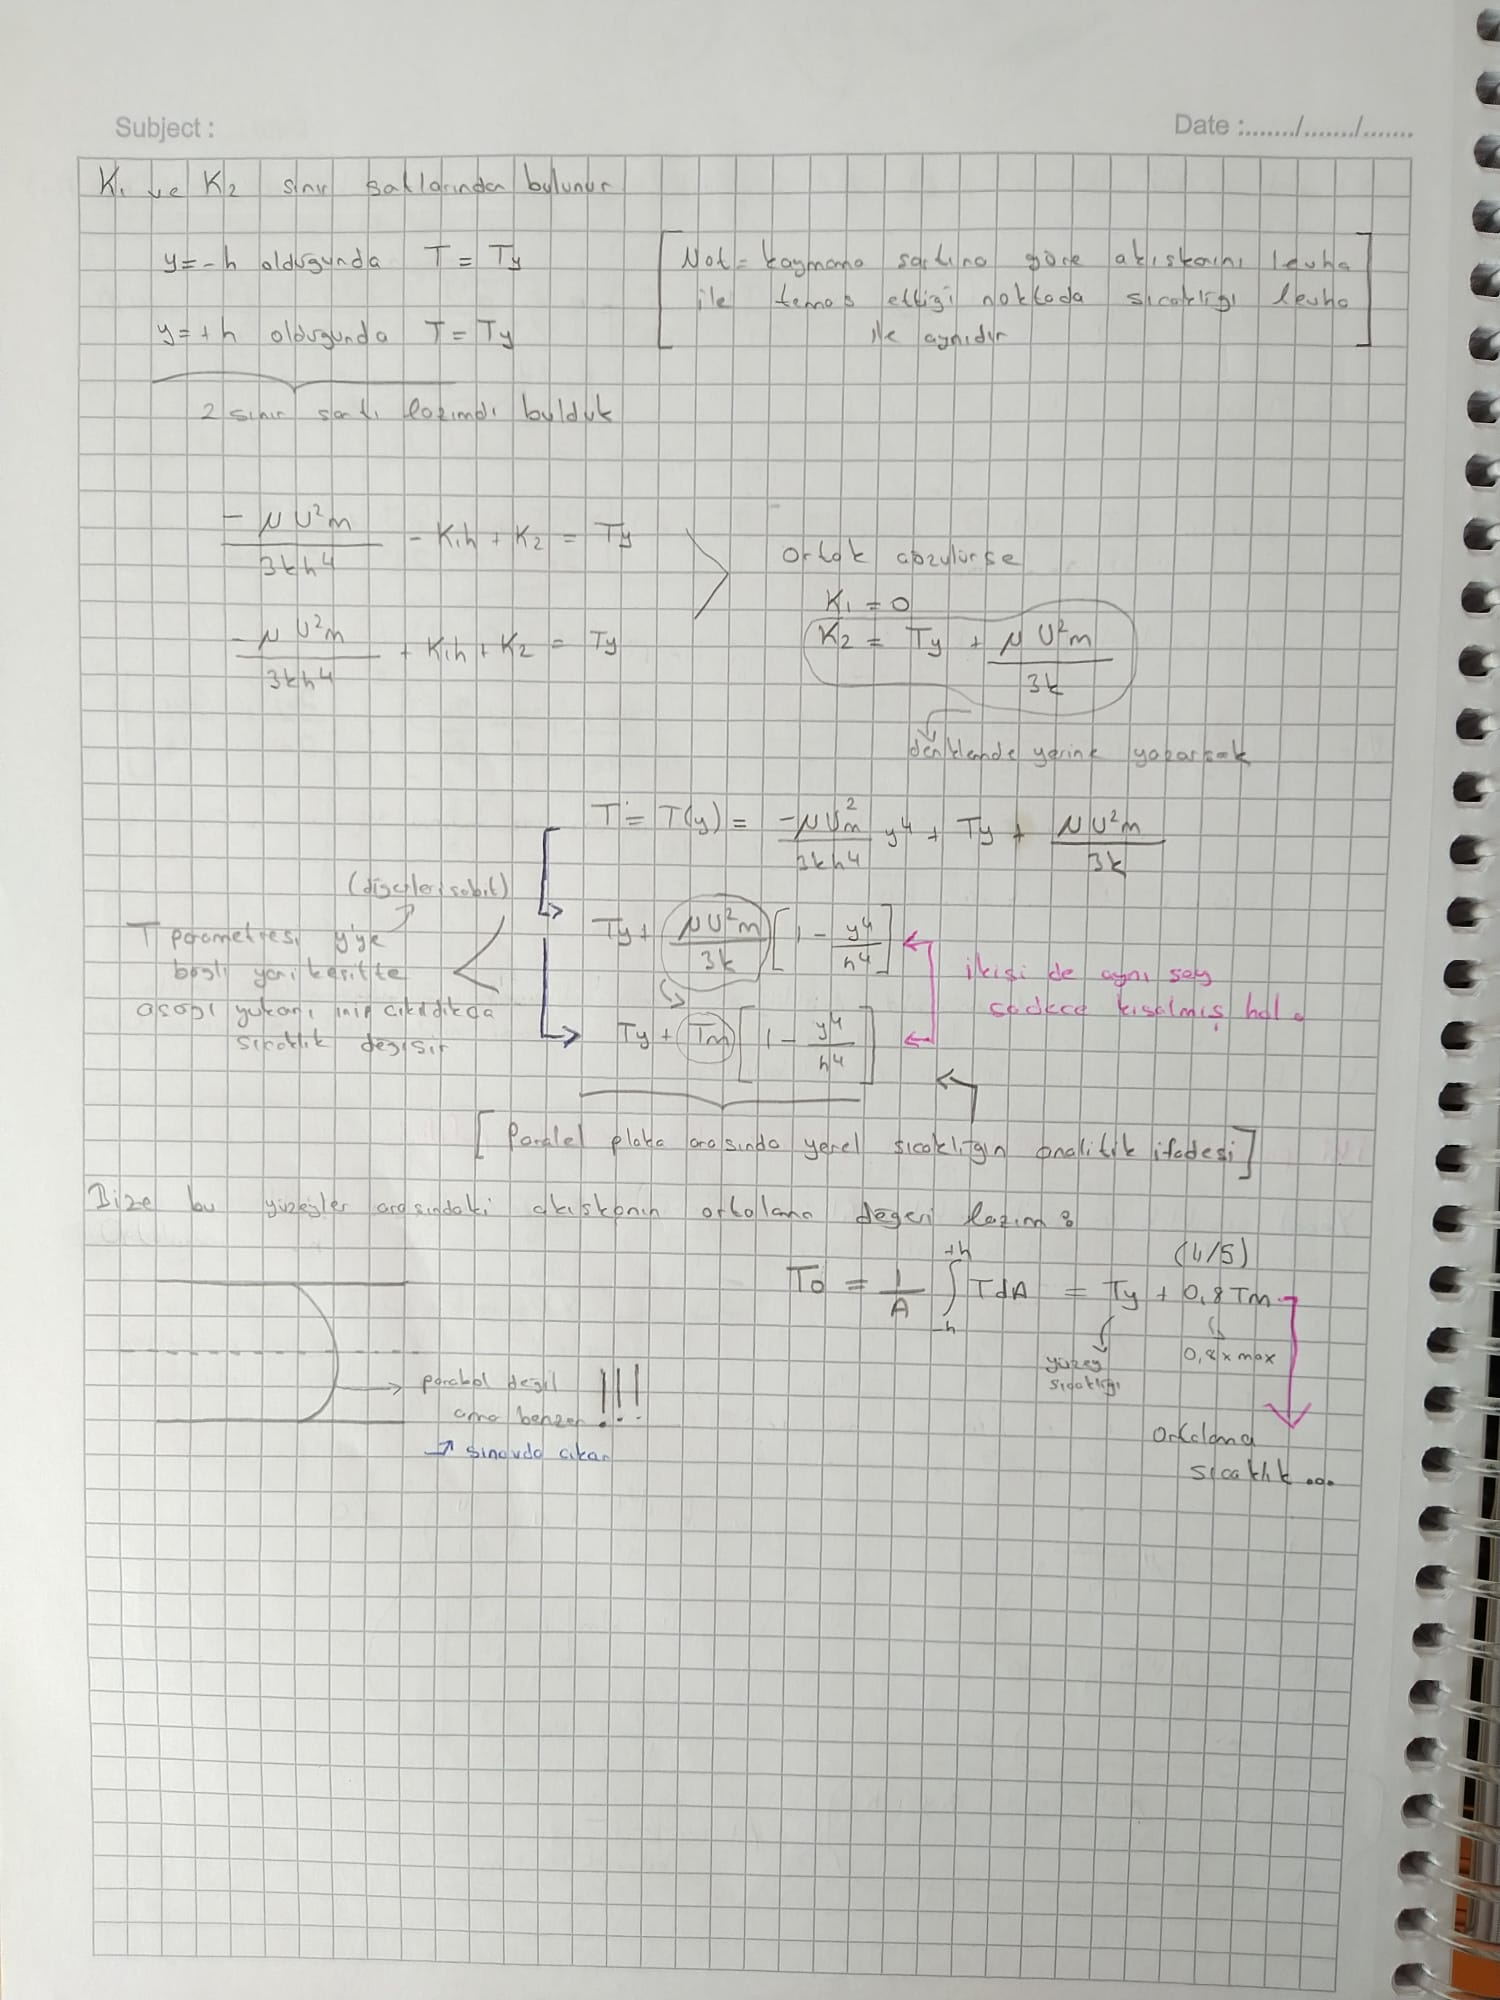 Subject :
Date :......../......../........
K₁ ve K₂ sınır şartlarından bulunur
y=-h olduğunda T = Ty
y=+h olduğunda T = Ty
[Not= kaymama şartına göre akışkanı levha
ile temas ettiği noktada sıcaklığı levha
ile aynıdır]
2 sınır şartı lazımdı bulduk
-μU²m / 3kh⁴ - K₁h + K₂ = Ty
-μU²m / 3kh⁴ + K₁h + K₂ = Ty
ortak çözülürse
K₁ = 0
K₂ = Ty + μU²m / 3k
denklemde yerine yazarsak
T = T(y) = -μUm² / 3kh⁴ y⁴ + Ty + μU²m / 3k
(diğerleri sabit)
T parametresi y'ye
bağlı yani kesitte
aşağı yukarı inip çıkıldıkça
sıcaklık değişir
Ty + μU²m / 3k [1 - y⁴/h⁴]
Ty + Tm [1 - y⁴/h⁴]
ikisi de aynı şey
sadece kısalmış hali
[Paralel plaka arasında yerel sıcaklığın analitik ifadesi]
Bize bu yüzeyler arasındaki akışkanın ortalama değeri lazım:
(4/5)
To = 1/A ∫₋ₕ⁺ʰ TdA = Ty + 0,8 Tm
yüzey
sıcaklığı
0,8 x max
Ortalama
sıcaklık ...
parabol değil
ama benzer !!!
→ sınavda çıkar